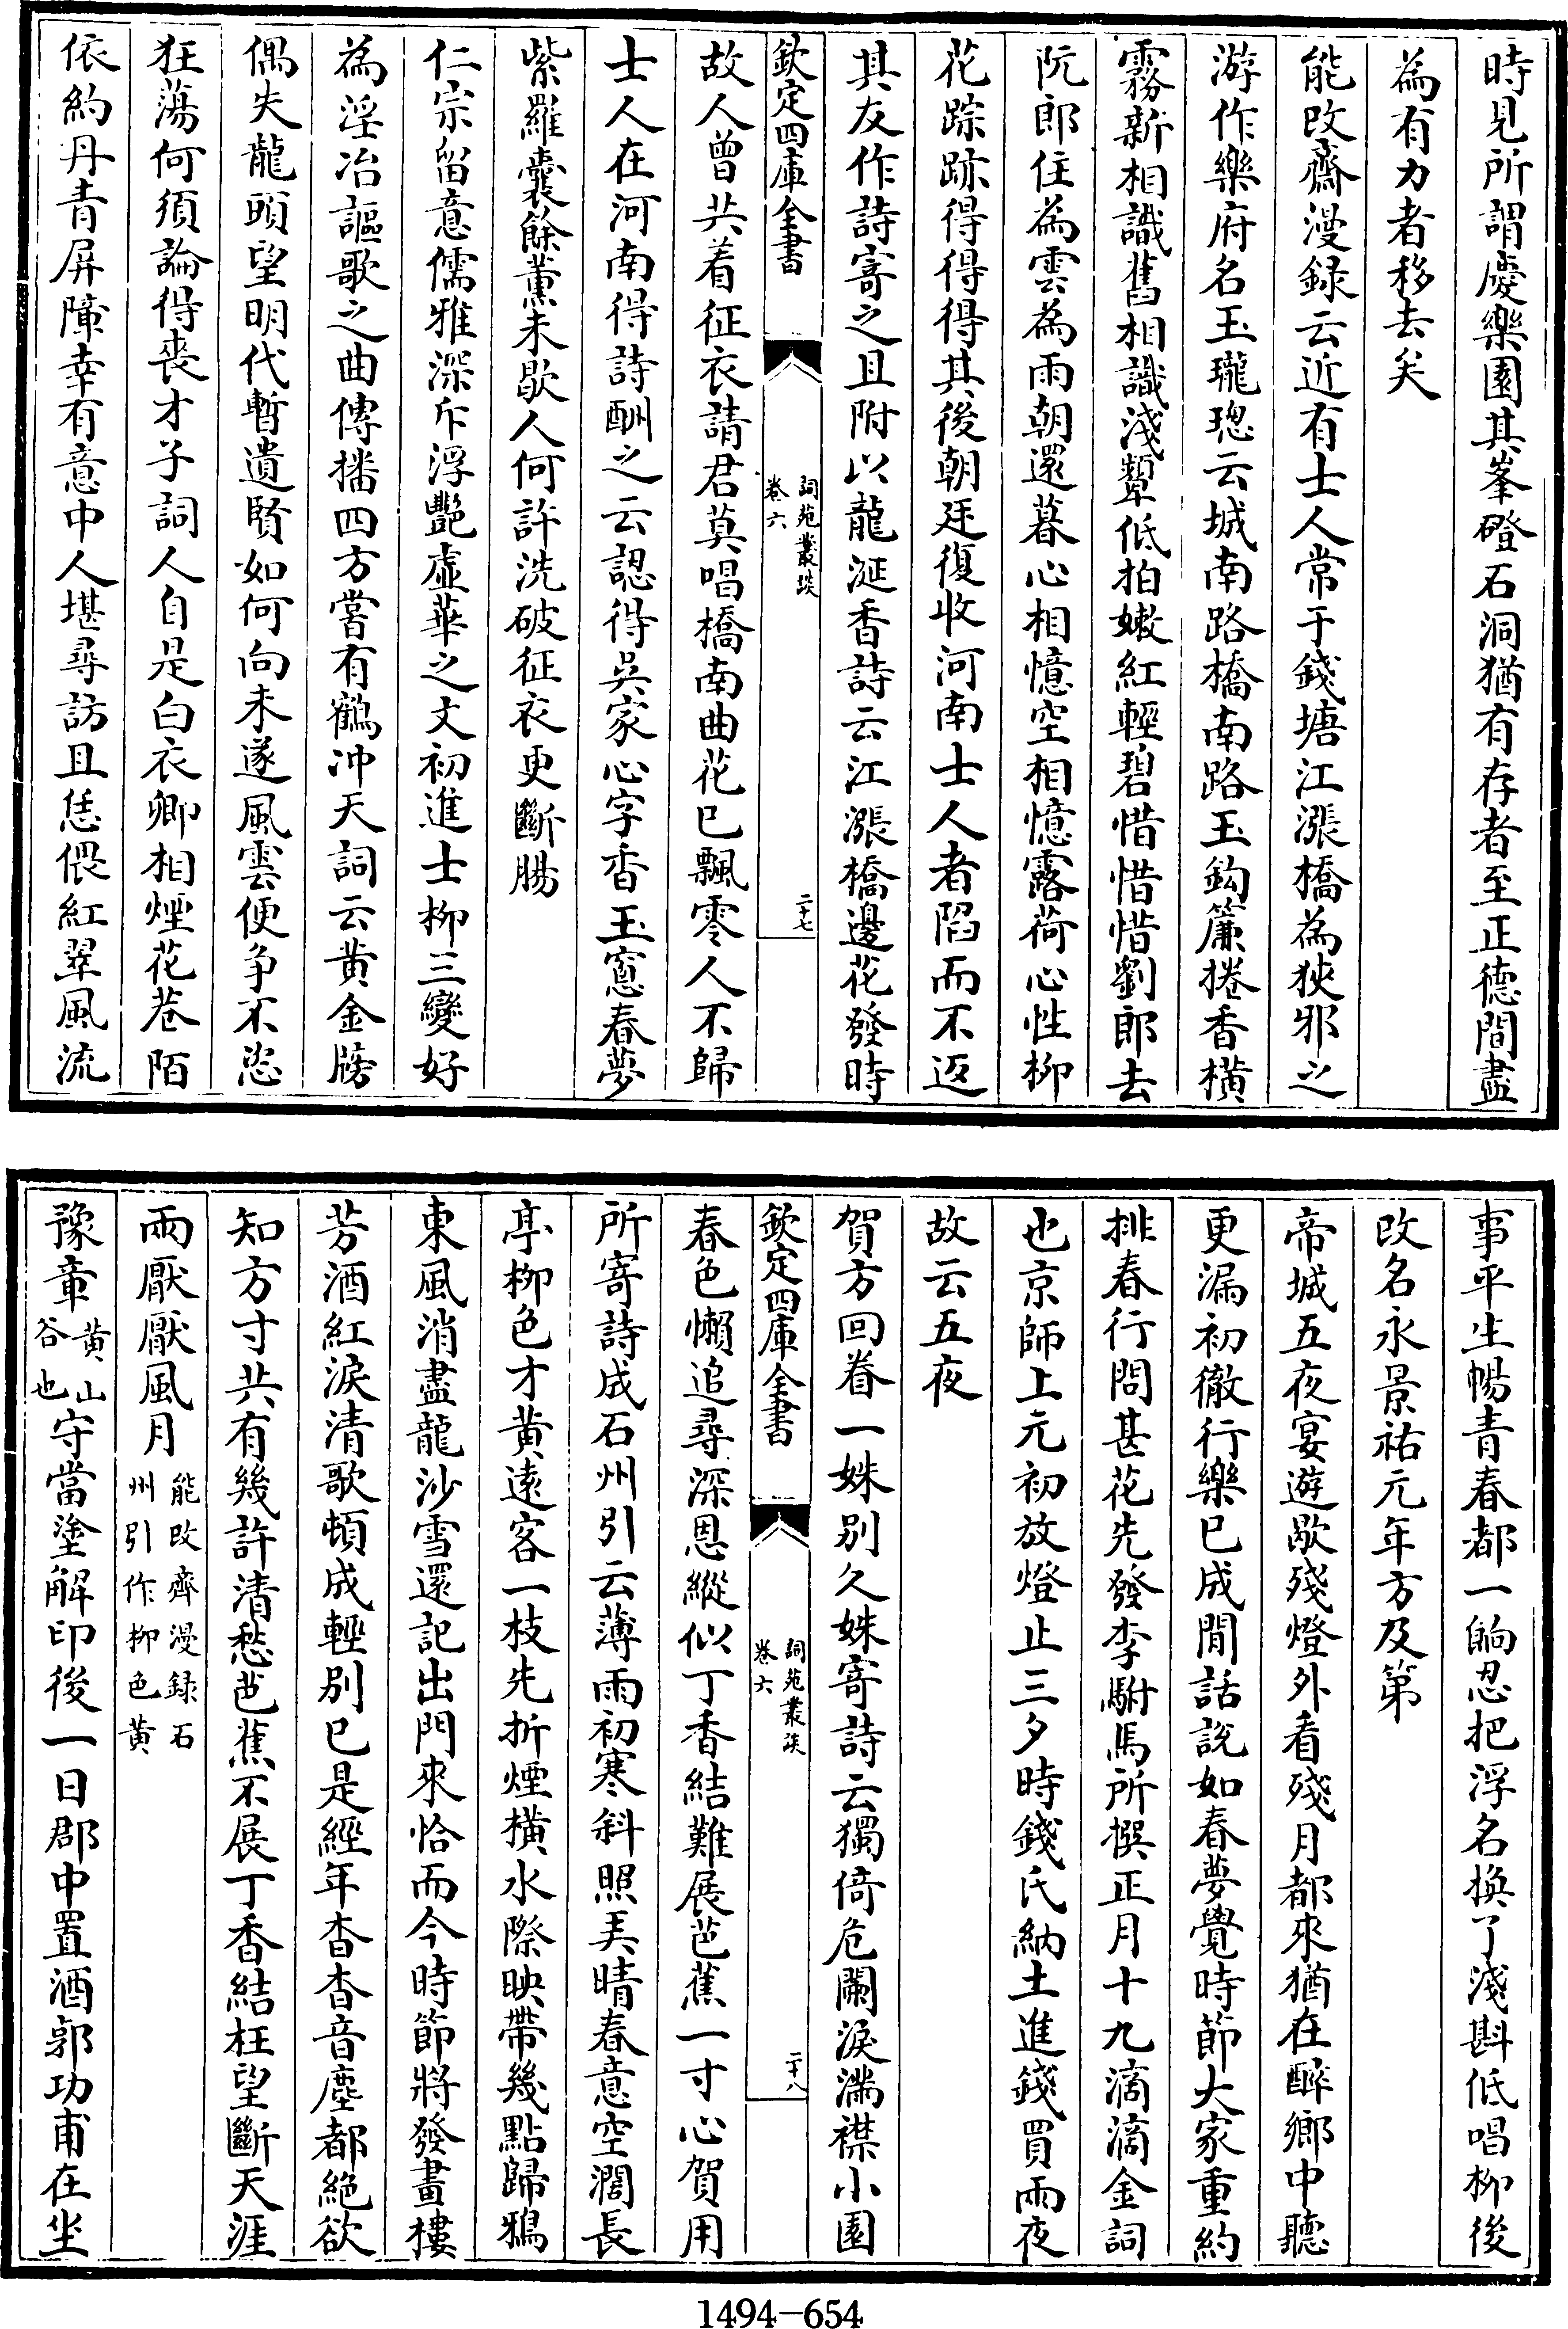 時見所謂慶樂園其峯磴石洞猶有存者至正德間盡
為有力者移去矣
能改齋漫録云近有士人常于錢塘江漲橋為狹邪之
游作樂府名玉瓏璁云城南路橋南路玉鈎簾捲香橫
霧新相識舊相識淺顰低拍嫩紅輕碧惜惜惜劉郎去
阮郎住為雲為雨朝還暮心相憶空相憶露荷心性柳
花踪跡得得得其後朝廷復收河南士人者陷而不返
其友作詩寄之且附以龍涎香詩云江漲橋邊花發時
欽定四庫全書
詞苑叢談
卷六
二十七
故人曾共着征衣請君莫唱橋南曲花已飄零人不歸
士人在河南得詩酬之云認得吳家心字香玉窻春夢
紫羅囊餘薰未歇人何許洗破征衣更斷腸
仁宗留意儒雅深斥浮艷虛華之文初進士柳三變好
為淫冶謳歌之曲傳播四方嘗有鶴冲天詞云黄金牓
偶失龍頭望明代暫遺賢如何向未遂風雲便争不恣
狂蕩何須論得喪才子詞人自是白衣卿相煙花巷陌
依約丹青屏障幸有意中人堪尋訪且恁偎紅翠風流
事平生暢青春都一餉忍把浮名換了淺斟低唱柳後
改名永景祐元年方及第
帝城五夜宴遊歇殘燈外看殘月都來猶在醉鄉中聽
更漏初徹行樂已成閒話說如春夢覺時節大家重約
排春行問甚花先發李駙馬所撰正月十九滴滴金詞
也京師上元初放燈止三夕時錢氏納土進錢買兩夜
故云五夜
賀方回眷一姝别久姝寄詩云獨倚危闌淚滿襟小園
欽定四庫全書
詞苑叢談
卷六
二十八
春色懶追尋深恩縱似丁香結難展芭蕉一寸心賀用
所寄詩成石州引云薄雨初寒斜照弄晴春意空濶長
亭柳色才黄遠客一枝先折煙橫水際映帶幾點歸鴉
東風消盡龍沙雪還記出門來恰而今時節將發畫樓
芳酒紅淚清歌頓成輕别已是經年杳杳音塵都絶欲
知方寸共有幾許清愁芭蕉不展丁香結枉望斷天涯
兩厭厭風月能改齋漫録石州引作柳色黄
豫章黄山谷也守當塗解印後一日郡中置酒郭功甫在坐
1494-654